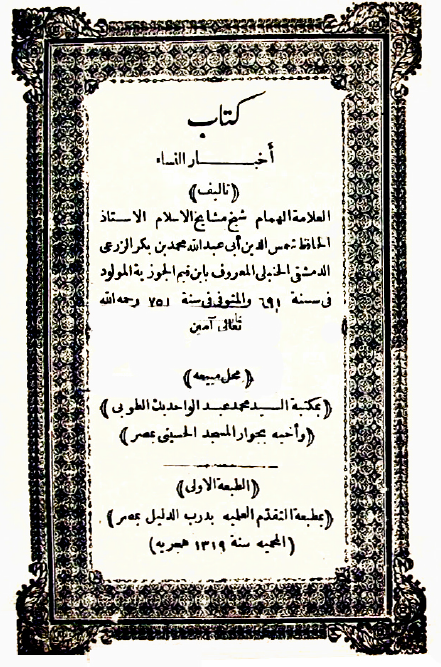 كتاب
أخبار النساء
﴿تاليف﴾
العلامة الهمام شيخ مشايخ الاسلام الاستاذ
الحافظ شمس الدين أبى عبد الله محمد بن بكر الزرعى
الدمشقى الحنبلى المعروف بابن قيم الجوزية المولود
فى سنة ٦٩١ والمتوفى فى سنة ٧٥١ رحمه الله
تعالى آمين
﴿محل مبيعه﴾
﴿بمكتبة السيد محمد عبد الواحد بك الطوبى﴾
﴿وأخيه بجوار المسجد الحسينى بمصر﴾
﴿الطبعة الاولى﴾
﴿بمطبعة التقدم العلميه بدرب الدليل بمصر﴾
(المحميه سنة ١٣١٩ هجريه)